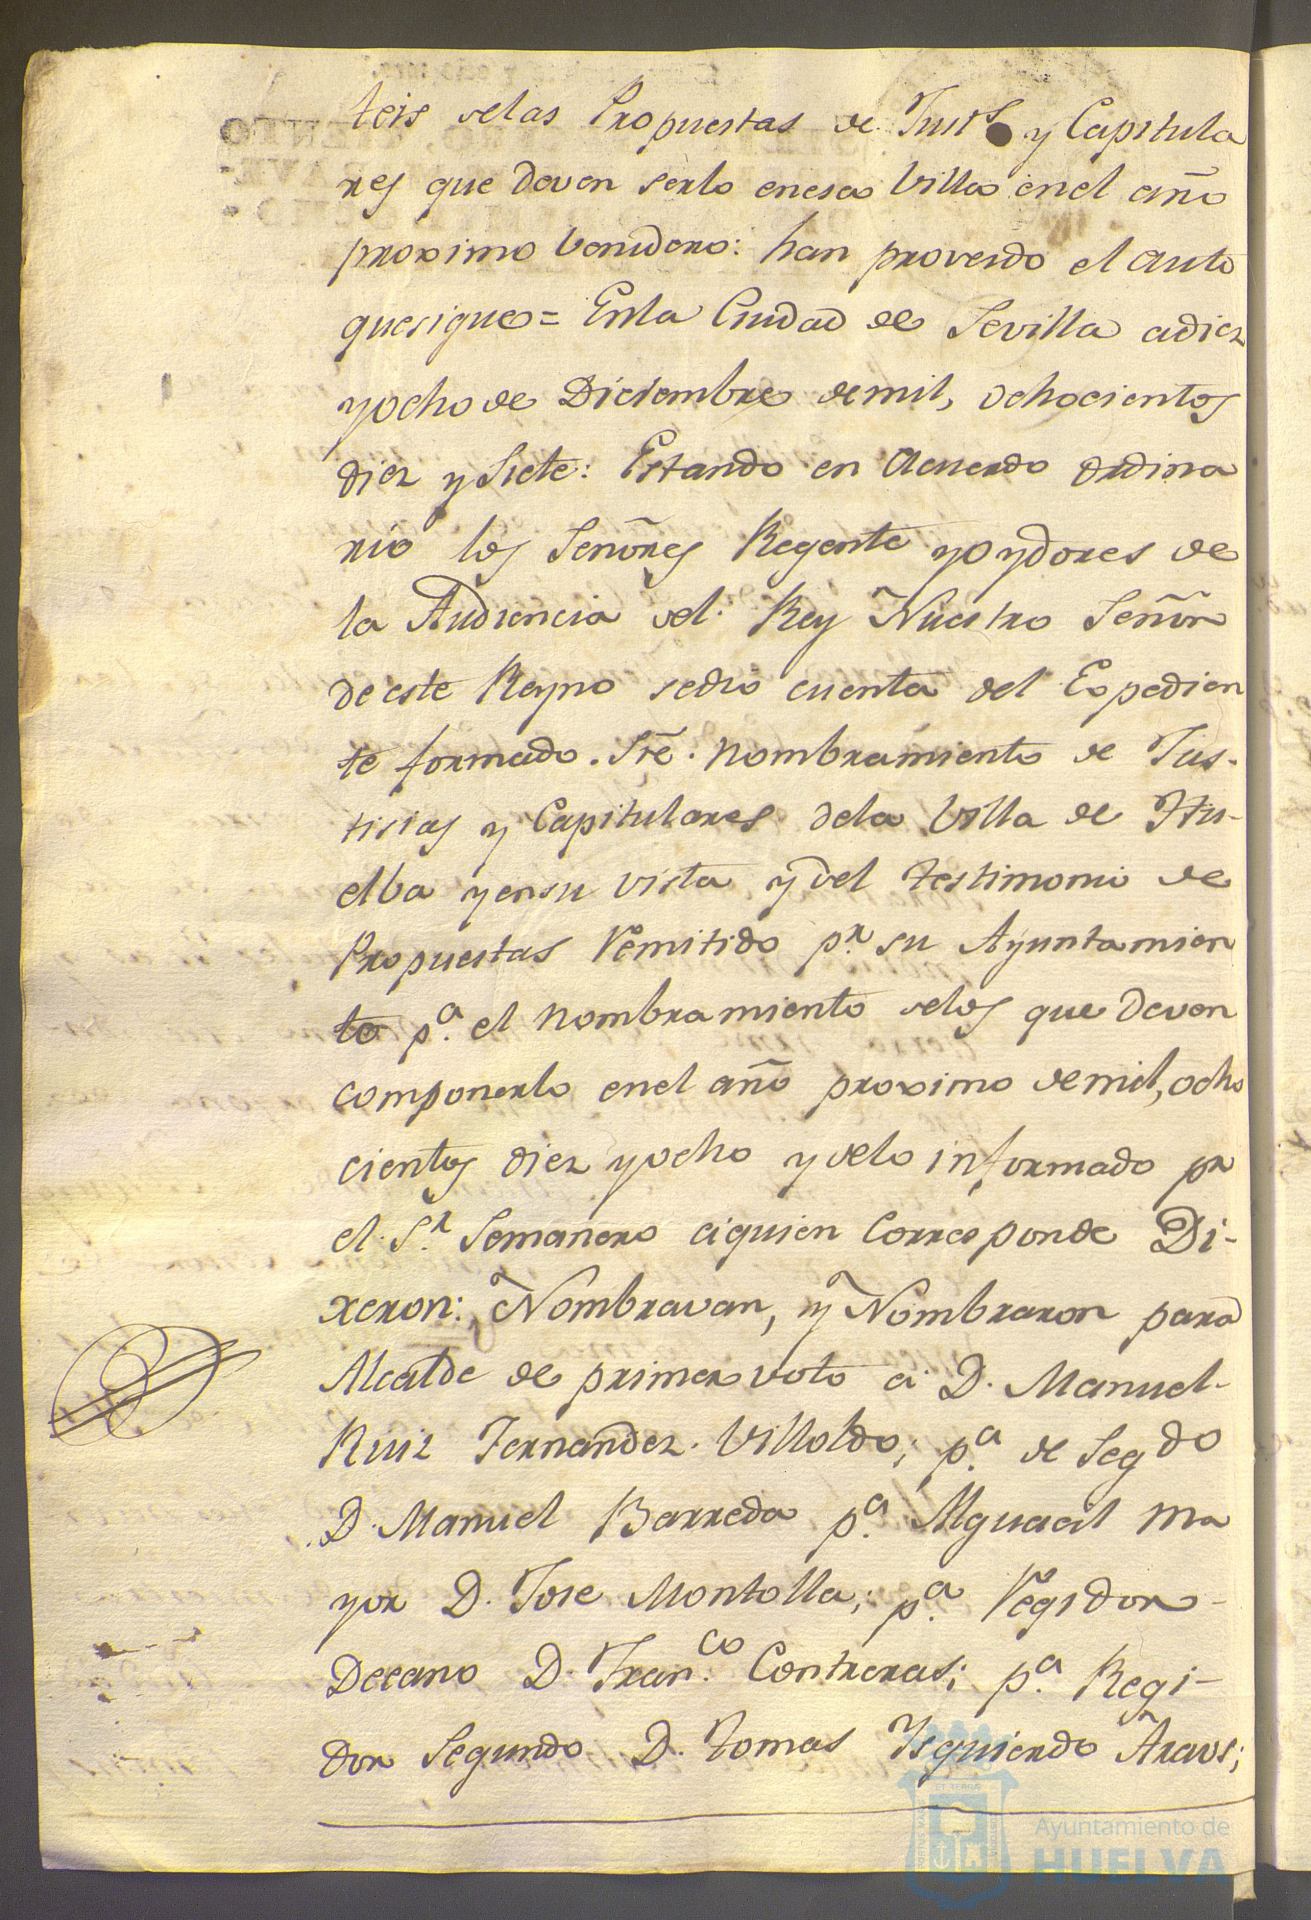 teis delas Propuestas de Just.s y Capitula
res que deven serlo enesa Villa enel año
proximo venidero: han proveido el auto
quesigue= Enla Ciudad de Sevilla adiez
yocho de Diciembre demil, ochocientos
diez y siete: Estando en Acuerdo ordina
rio los Señores Regente yoydores de
la Audiencia del Rey Nuestro Señor
de este Reyno sedio cuenta del Expedien
te formado sre. nombramiento de Jus-
tisias y Capitulares dela Villa de Hu-
elba yensu vista y del testimonio de
Propuestas Remitido pr. su Ayuntamien
to pa. el nombramiento delos que deven
componerlo enel año proximo demil, ocho
cientos diez yocho y delo informado pr
el Sr. Semanero aquien Corresponde Di-
xeron: Nombravan, y Nombraron para
Alcalde de primer voto a D. Manuel
Ruiz Fernandez Villoldo; pa. de Segdo
D. Manuel Barreda pa. Alguacil ma
yor D. Jose Montolla; pa. Regidor
Decano D. Franco. Contreras; pa. Regi-
dor Segundo D. Tomas Ysquierdo Araus;
Ayuntamiento de
HUELVA